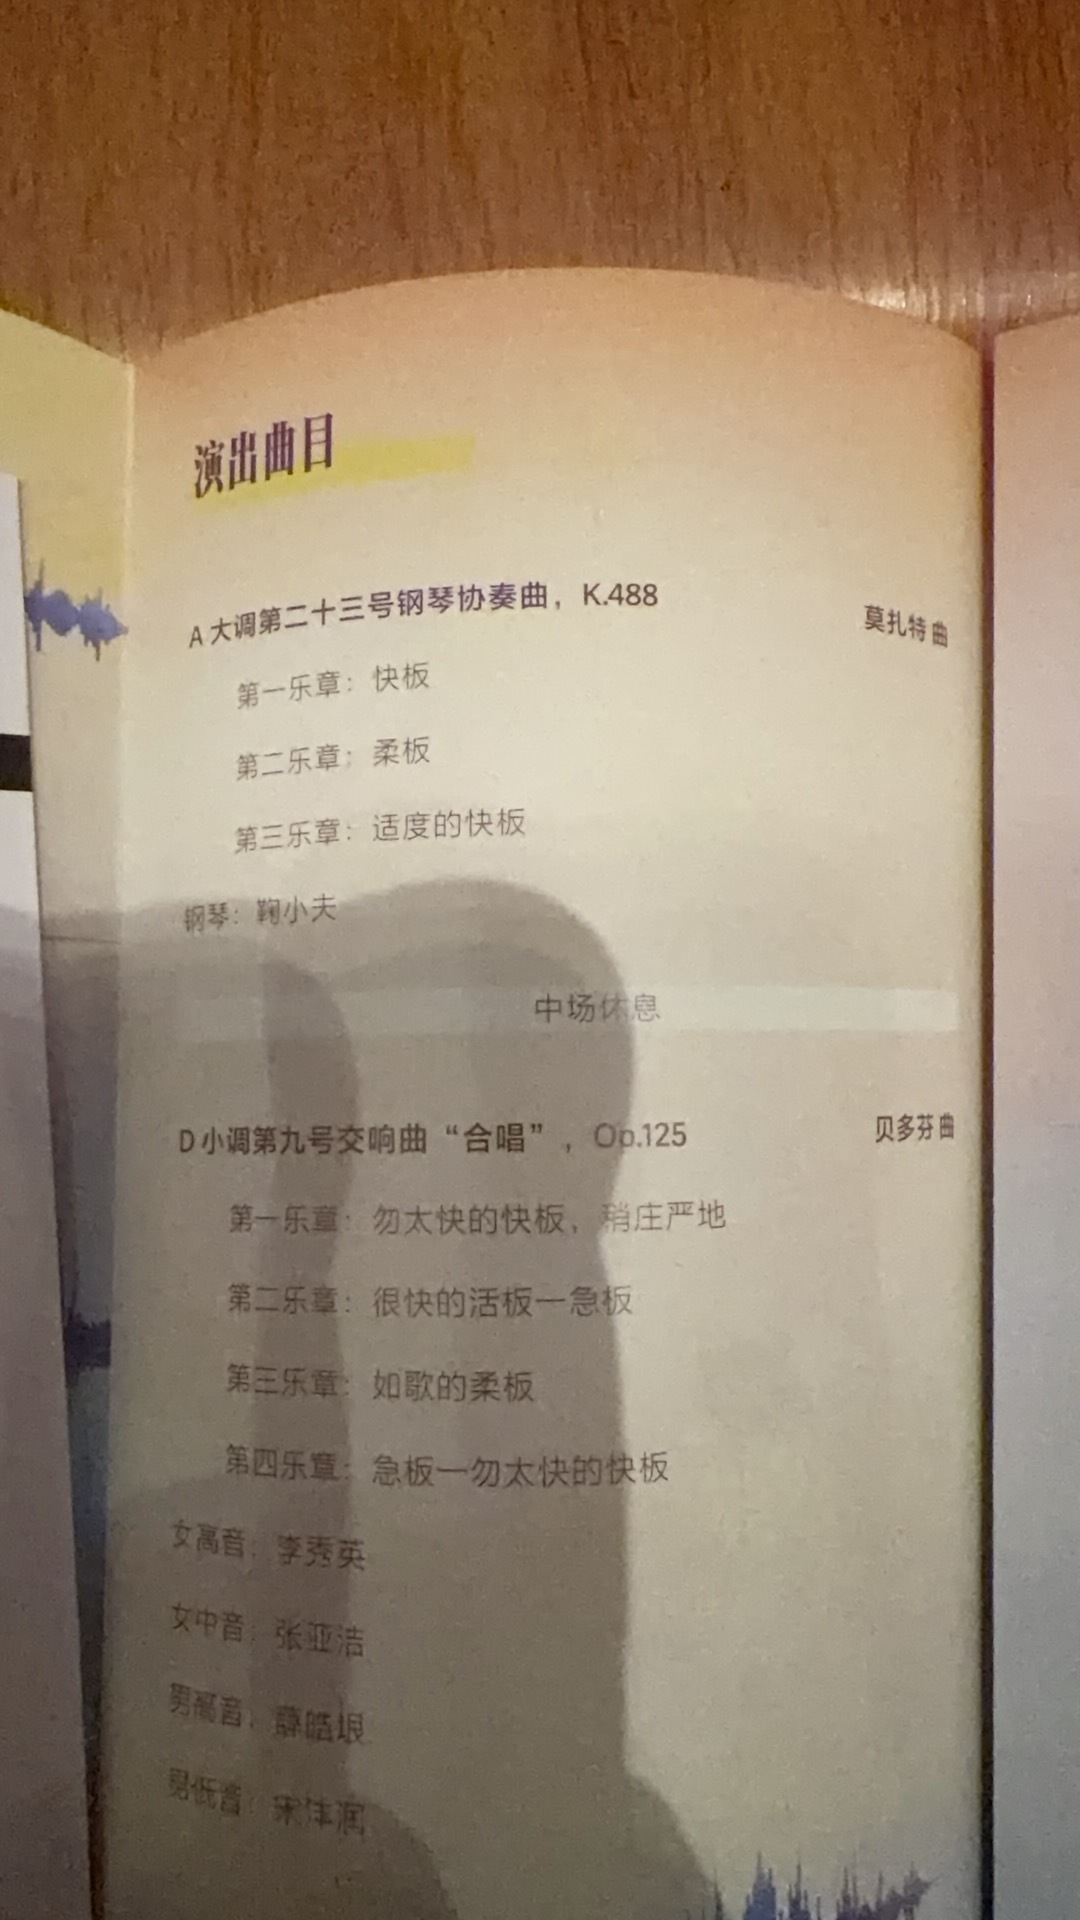 演出曲目
A大调第二十三号钢琴协奏曲，K.488 莫扎特 曲
第一乐章：快板
第二乐章：柔板
第三乐章：适度的快板
钢琴：鞠小夫
中场休息
D小调第九号交响曲“合唱”，Op.125 贝多芬 曲
第一乐章：勿太快的快板，稍庄严地
第二乐章：很快的活板—急板
第三乐章：如歌的柔板
第四乐章：急板—勿太快的快板
女高音：李秀英
女中音：张亚洁
男高音：薛皓垠
男低音：宋